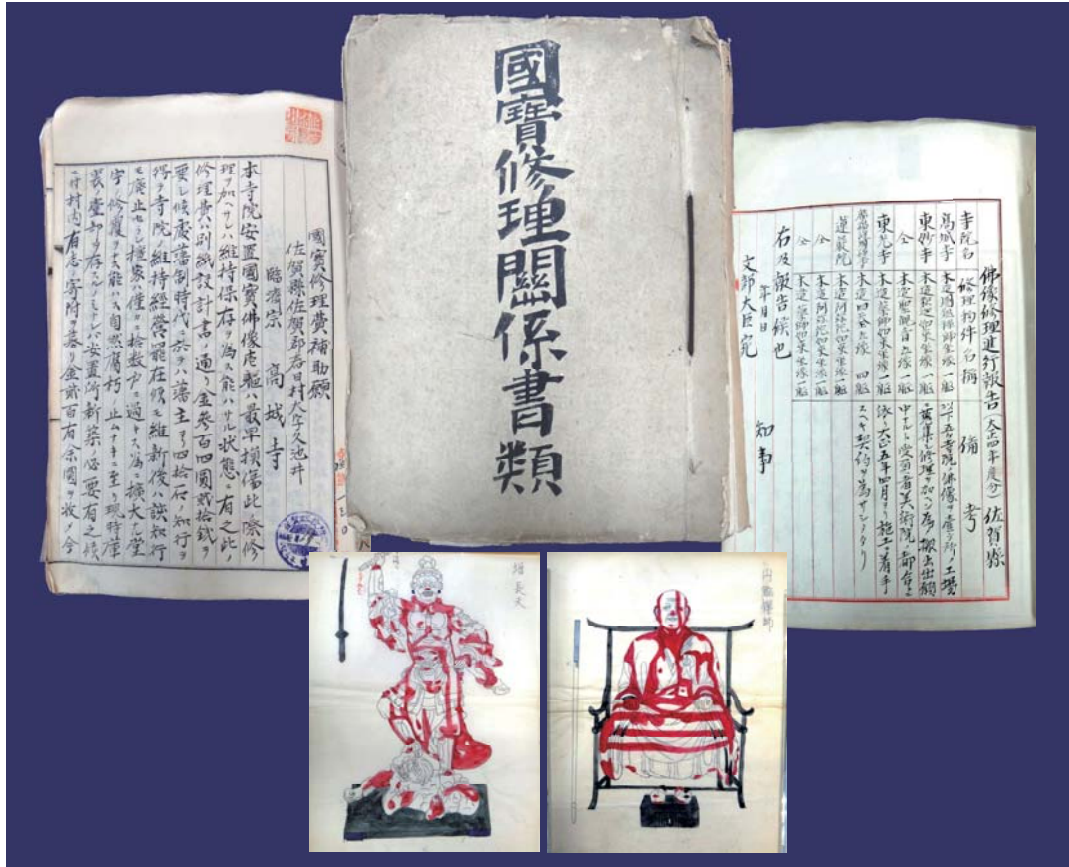 國寶修理關係書類
國寶修理費補助願
佐賀縣佐賀郡春日村大字久池井
臨濟宗 高城寺
本寺院安置國寶佛像壱軀ハ最早損傷此際修
理ヲ加ヘサレハ維持保存ヲ為ス能ハサル状態ニ有之此
修理費ハ別紙設計書ノ通リ金参百四圓貳拾銭ヲ
要シ候處藩制時代ニ於テハ藩主ヨリ四拾石ノ知行ヲ
得テ寺院ノ維持経營罷在候モ維新後ハ該知行
モ廃止セラレ檀家ハ僅カニ拾数戸ニ過キス為ニ擴大ナル堂
宇ノ修覆ヲ
自然腐朽ニ
安置所新築ノ必要有之
村内有志ノ寄附ヲ募リ金貳百有余圓ヲ收メ今
佛像修理進行報告(大正四年度分) 佐賀縣
寺院名 修理物件名稱 備考
高城寺 木造圓鑑禅師坐像 一軀
東妙寺 木造釈迦如来坐像 一軀
仝 木造聖観音立像 一軀
東光寺 木造薬師如来坐像 一軀
木造四天王立像 四軀
蓮嚴院 木造阿弥陀如来坐像 一軀
仝 木造阿弥陀如来坐像 一軀
仝 木造薬師如来坐像 一軀
右及報告候也
年月日 知事
文部大臣宛
増長天
円鑑禅師